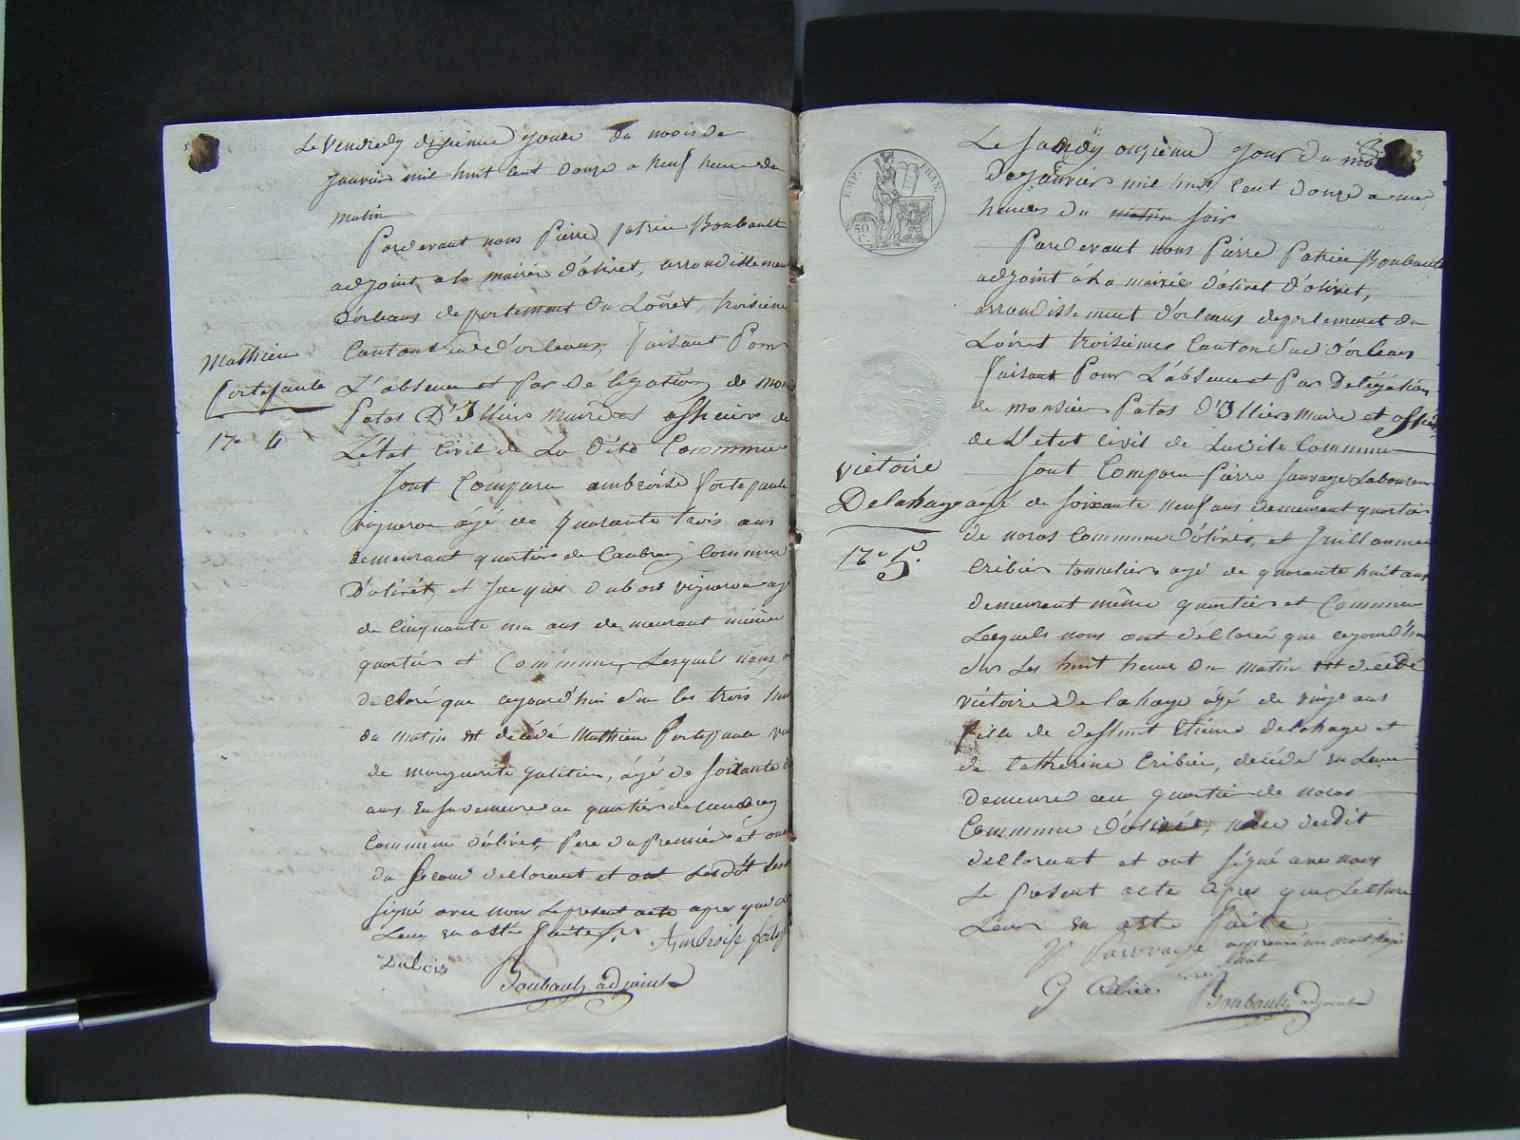 Le Vendredy dixieme Jour du mois de
Janvier mil huit cent douze a neuf heure du
matin
Pardevant nous Pierre patrice Boubault
adjoint a la mairie d'olivet, arrondissement
d'orleans departement du Loiret, troisieme
Canton Sud d'orleans, faisant Pour
L'absence et par délégation de mons
Patas D'Illiers maire et officier de
L'état civil de La dite Commune
Mathieu
Portepaute
17e 4
Sont Comparu ambroise Portepaute
vigneron agé de quarante trois ans
demeurant quartier de Caubray Commune
D'olivet, et Jacque dubois vigneron agé
de Cinquante un ans demeurant même
quartier et Commune, Lesquels nous
declaré que aujourd'hui sur les trois heure
du matin est décédé Mathieu Portepaute
de marguerite, agé de soixante
ans En sa demeure au quartier de Caubray
Commune d'olivet, Pere du premier et
du second declarant et ont Lesdit
signé avec nous Le present acte apres que
Leur En a été faite
Ambroise
Dubois
Boubault adjoint
EMP. FRAN.
50 C.
Le Samdy onzieme Jour du
De Janvier mil huit Cent douze a
heures du matin soir
Pardevant nous Pierre Patrice Boubault
adjoint à La mairie d'olivet d'olivet,
arrondissement d'orleans departement du
Loiret troisieme Canton Sud d'orleans
faisant Pour L'absence et Par Delégation
de monsieur Patas d'Illiers maire et officier
de L'etat Civil de Ladite Commune
Victoire
Delahaye
17e 5
Sont Comparu Pierre Sauvage Laboureur
agé de soixante neuf ans demeurant quartier
de noras Commune d'olivet, et Guillaume
Cribier tonnelier agé de quarante huit ans
Demeurant même quartier et Commune
Lesquels nous ont déclaré que aujourd'hui
sur Les huit heure du matin est décédé
victoire Delahaye agé de vingt ans
fille de deffunt Etienne delahaye et
de Catherine Cribier, décédé en Leur
Demeure au quartier de noras
Commune d'olivet, desdit
declarant et ont signé avec nous
Le present acte apres que Lecture
Leur En a été faite
P Sauvage approuvé un mot rayé
G Cribier
Boubault adjoint